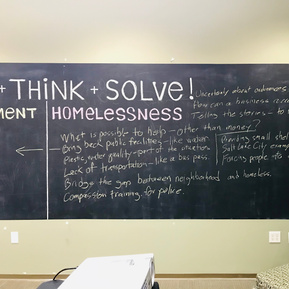 + THINK + SOLVE!
MENT
HOMELESSNESS
What is possible to help - other than money?
Bring back public facilities - like
Plastic, water quality - part of the situation
Lack of transportation - like a bus pass
Bridge the gap between neighborhood and homeless.
Compassion training for police.
Uncertainty about
How can a business
Telling the stories - to
Providing small
Salt Lake City
Finding people to